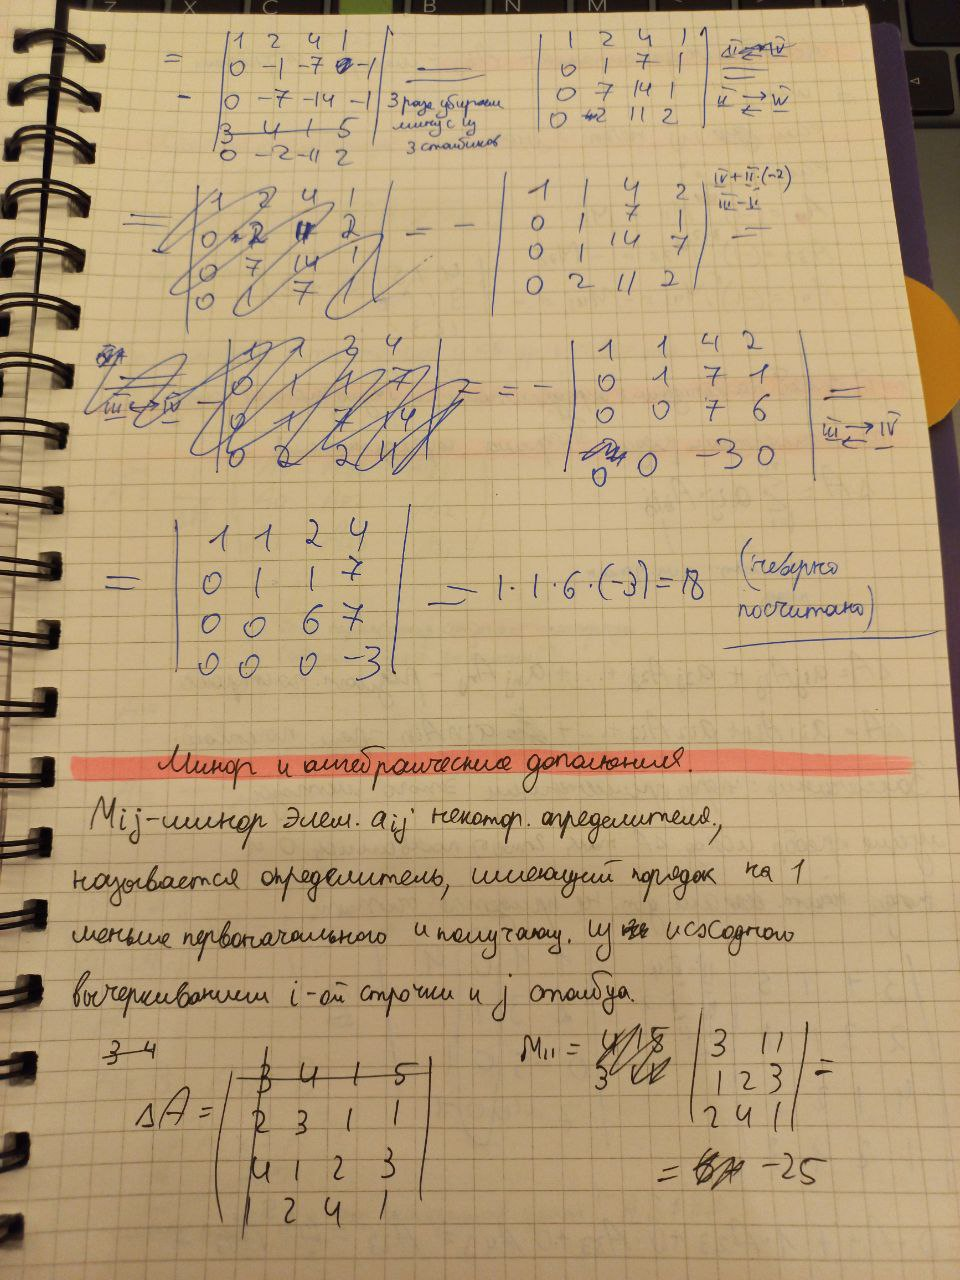 = | 1 2 4 1 |
0 -1 -7 -1
- 0 -7 -14 -1
3 4 1 5
0 -2 -11 2
3 раза убираем
минус из
3 столбиков
1 2 4 1
0 1 7 1
0 7 14 1
0 2 11 2
II ⇄ IV
= | 1 2 4 1 |
0 2 11 2
0 7 14 1
0 1 7 1
= - | 1 1 4 2 |
0 1 7 1
0 1 14 7
0 2 11 2
IV + II·(-2)
III - II
=
III ⇄ IV
- | 1 1 3 4 |
0 1 1 7
0 1 7 14
0 2 2 11
= - | 1 1 4 2 | =
0 1 7 1
0 0 7 6
0 0 -3 0
III ⇄ IV
= | 1 1 2 4 |
0 1 1 7
0 0 6 7
0 0 0 -3
= 1·1·6·(-3) = 18
(неверно
посчитано)
Минор и алгебраические дополнения.
Mij - минор элем. aij некотор. определителя,
называется определитель, имеющий порядок на 1
меньше первоначального и получающ. из исходного
вычеркиванием i-ой строчки и j столбца.
3 4
ΔA = | 3 4 1 5 |
2 3 1 1
4 1 2 3
1 2 4 1
M11 = | 3 1 1 | =
1 2 3
2 4 1
= -25